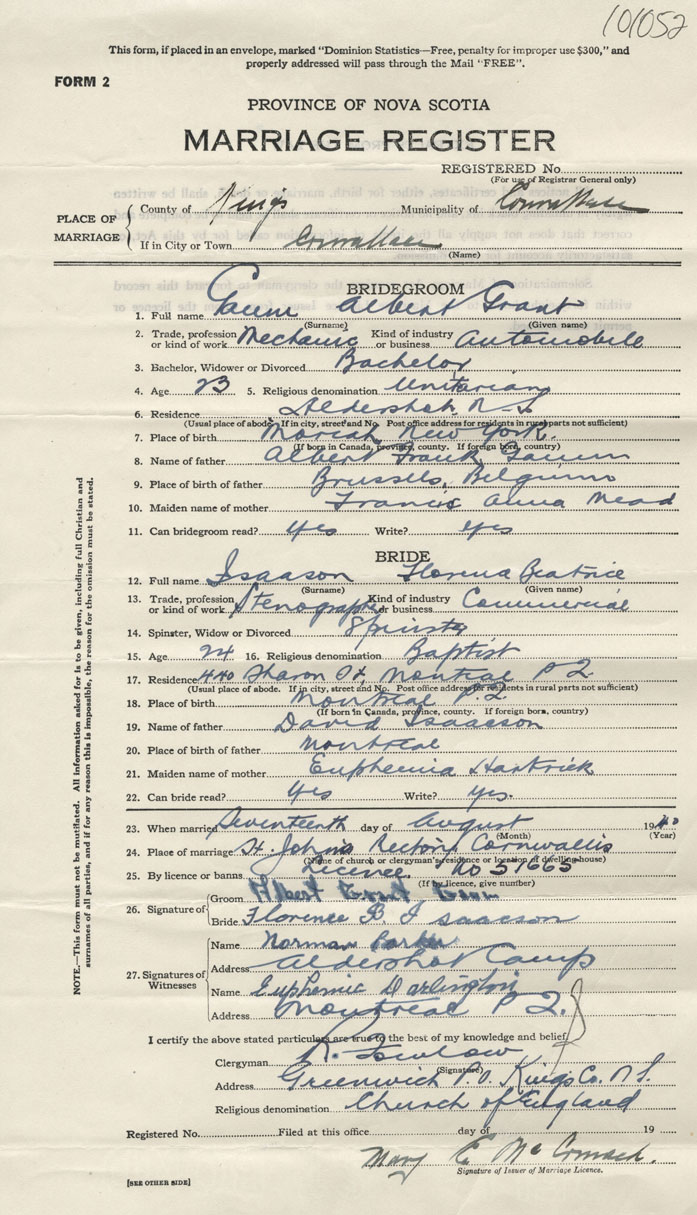 101052
This form, if placed in an envelope, marked "Dominion Statistics—Free, penalty for improper use $300," and
properly addressed will pass through the Mail "FREE".
FORM 2
PROVINCE OF NOVA SCOTIA
MARRIAGE REGISTER
REGISTERED No.
(For use of Registrar General only)
PLACE OF MARRIAGE
County of Kings Municipality of Cornwallis
If in City or Town Cornwallis
(Name)
BRIDEGROOM
1. Full name Albert Grant
(Surname) (Given name)
2. Trade, profession or kind of work Mechanic Kind of industry or business Automobile
3. Bachelor, Widower or Divorced Bachelor
4. Age 23 5. Religious denomination Unitarian
6. Residence Aldershot, N-S
(Usual place of abode. If in city, street and No. Post office address for residents in rural parts not sufficient)
7. Place of birth Moriah, New York.
(If born in Canada, province, county. If foreign born, country)
8. Name of father Albert Frank
9. Place of birth of father Brussels, Belgium
10. Maiden name of mother Francis Anna Mead
11. Can bridegroom read? yes Write? yes
BRIDE
12. Full name Isaacson Florence Beatrice
(Surname) (Given name)
13. Trade, profession or kind of work Stenographer Kind of industry or business Commercial
14. Spinster, Widow or Divorced Spinster
15. Age 24 16. Religious denomination Baptist
17. Residence 440 Sharon St, Montreal P2
(Usual place of abode. If in city, street and No. Post office address for residents in rural parts not sufficient)
18. Place of birth Montreal P.2
(If born in Canada, province, county. If foreign born, country)
19. Name of father David Isaacson
20. Place of birth of father Montreal
21. Maiden name of mother Euphemia Hartrick
22. Can bride read? yes Write? yes.
23. When married Seventeenth day of August 1940
(Month) (Year)
24. Place of marriage St. John's Rectory Cornwallis
(Name of church or clergyman's residence or location of dwelling-house)
25. By licence or banns Licence, No 51665
(If by licence, give number)
26. Signature of
Groom Albert Grant
Bride Florence B. Isaacson
27. Signatures of Witnesses
Name Norman Parker
Address Aldershot Camp
Name Euphemia Darlington
Address Montreal P2.
I certify the above stated particulars are true to the best of my knowledge and belief
Clergyman
(Signature)
Address Greenwich P.O. Kings Co. N S.
Religious denomination Church of England
Registered No. Filed at this office day of 19
Mary E. McCormack.
Signature of Issuer of Marriage Licence.
[SEE OTHER SIDE]
NOTE.—This form must not be mutilated. All information asked for is to be given, including full Christian and
surnames of all parties, and if for any reason this is impossible, the reason for the omission must be stated.